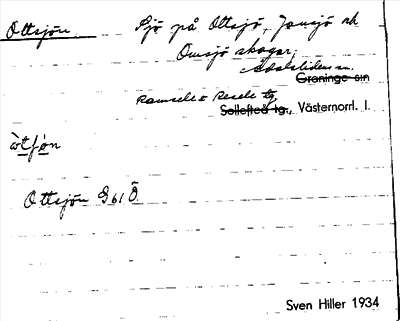 Ottsjön Sjö på Ottsjö, Jansjö och
Omsjö skogar.
Ådalslidens sn.
Graninge sn
Ramsele o Resele tg
Sollefteå tg., Västernorrl. l.
Ottsjön G 61 Ö
Sven Hiller 1934